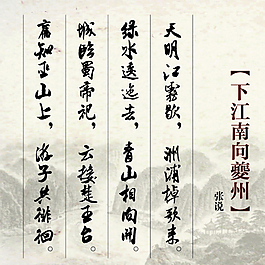 【下江南向夔州】
张说
天明江雾歇，洲浦棹歌来。
绿水逶迤去，青山相向開。
城临蜀帝祀，云接楚王台。
舊知巫山上，游子共徘徊。